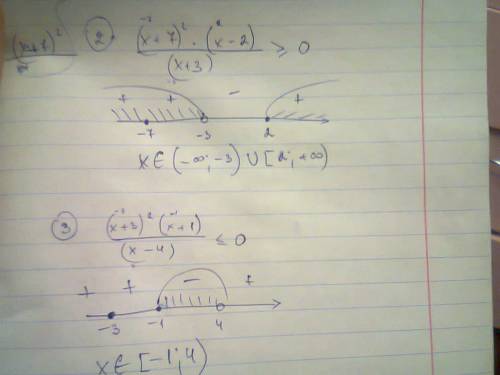 (x+7)²
② (x+7)² · (x-2)
(x+3) ≥ 0
+ + - +
-7 -3 2
x∈(-∞;-3)∪[2;+∞)
③ (x+3)² (x+1)
(x-4) ≤ 0
+ + - +
-3 -1 4
x∈[-1;4)